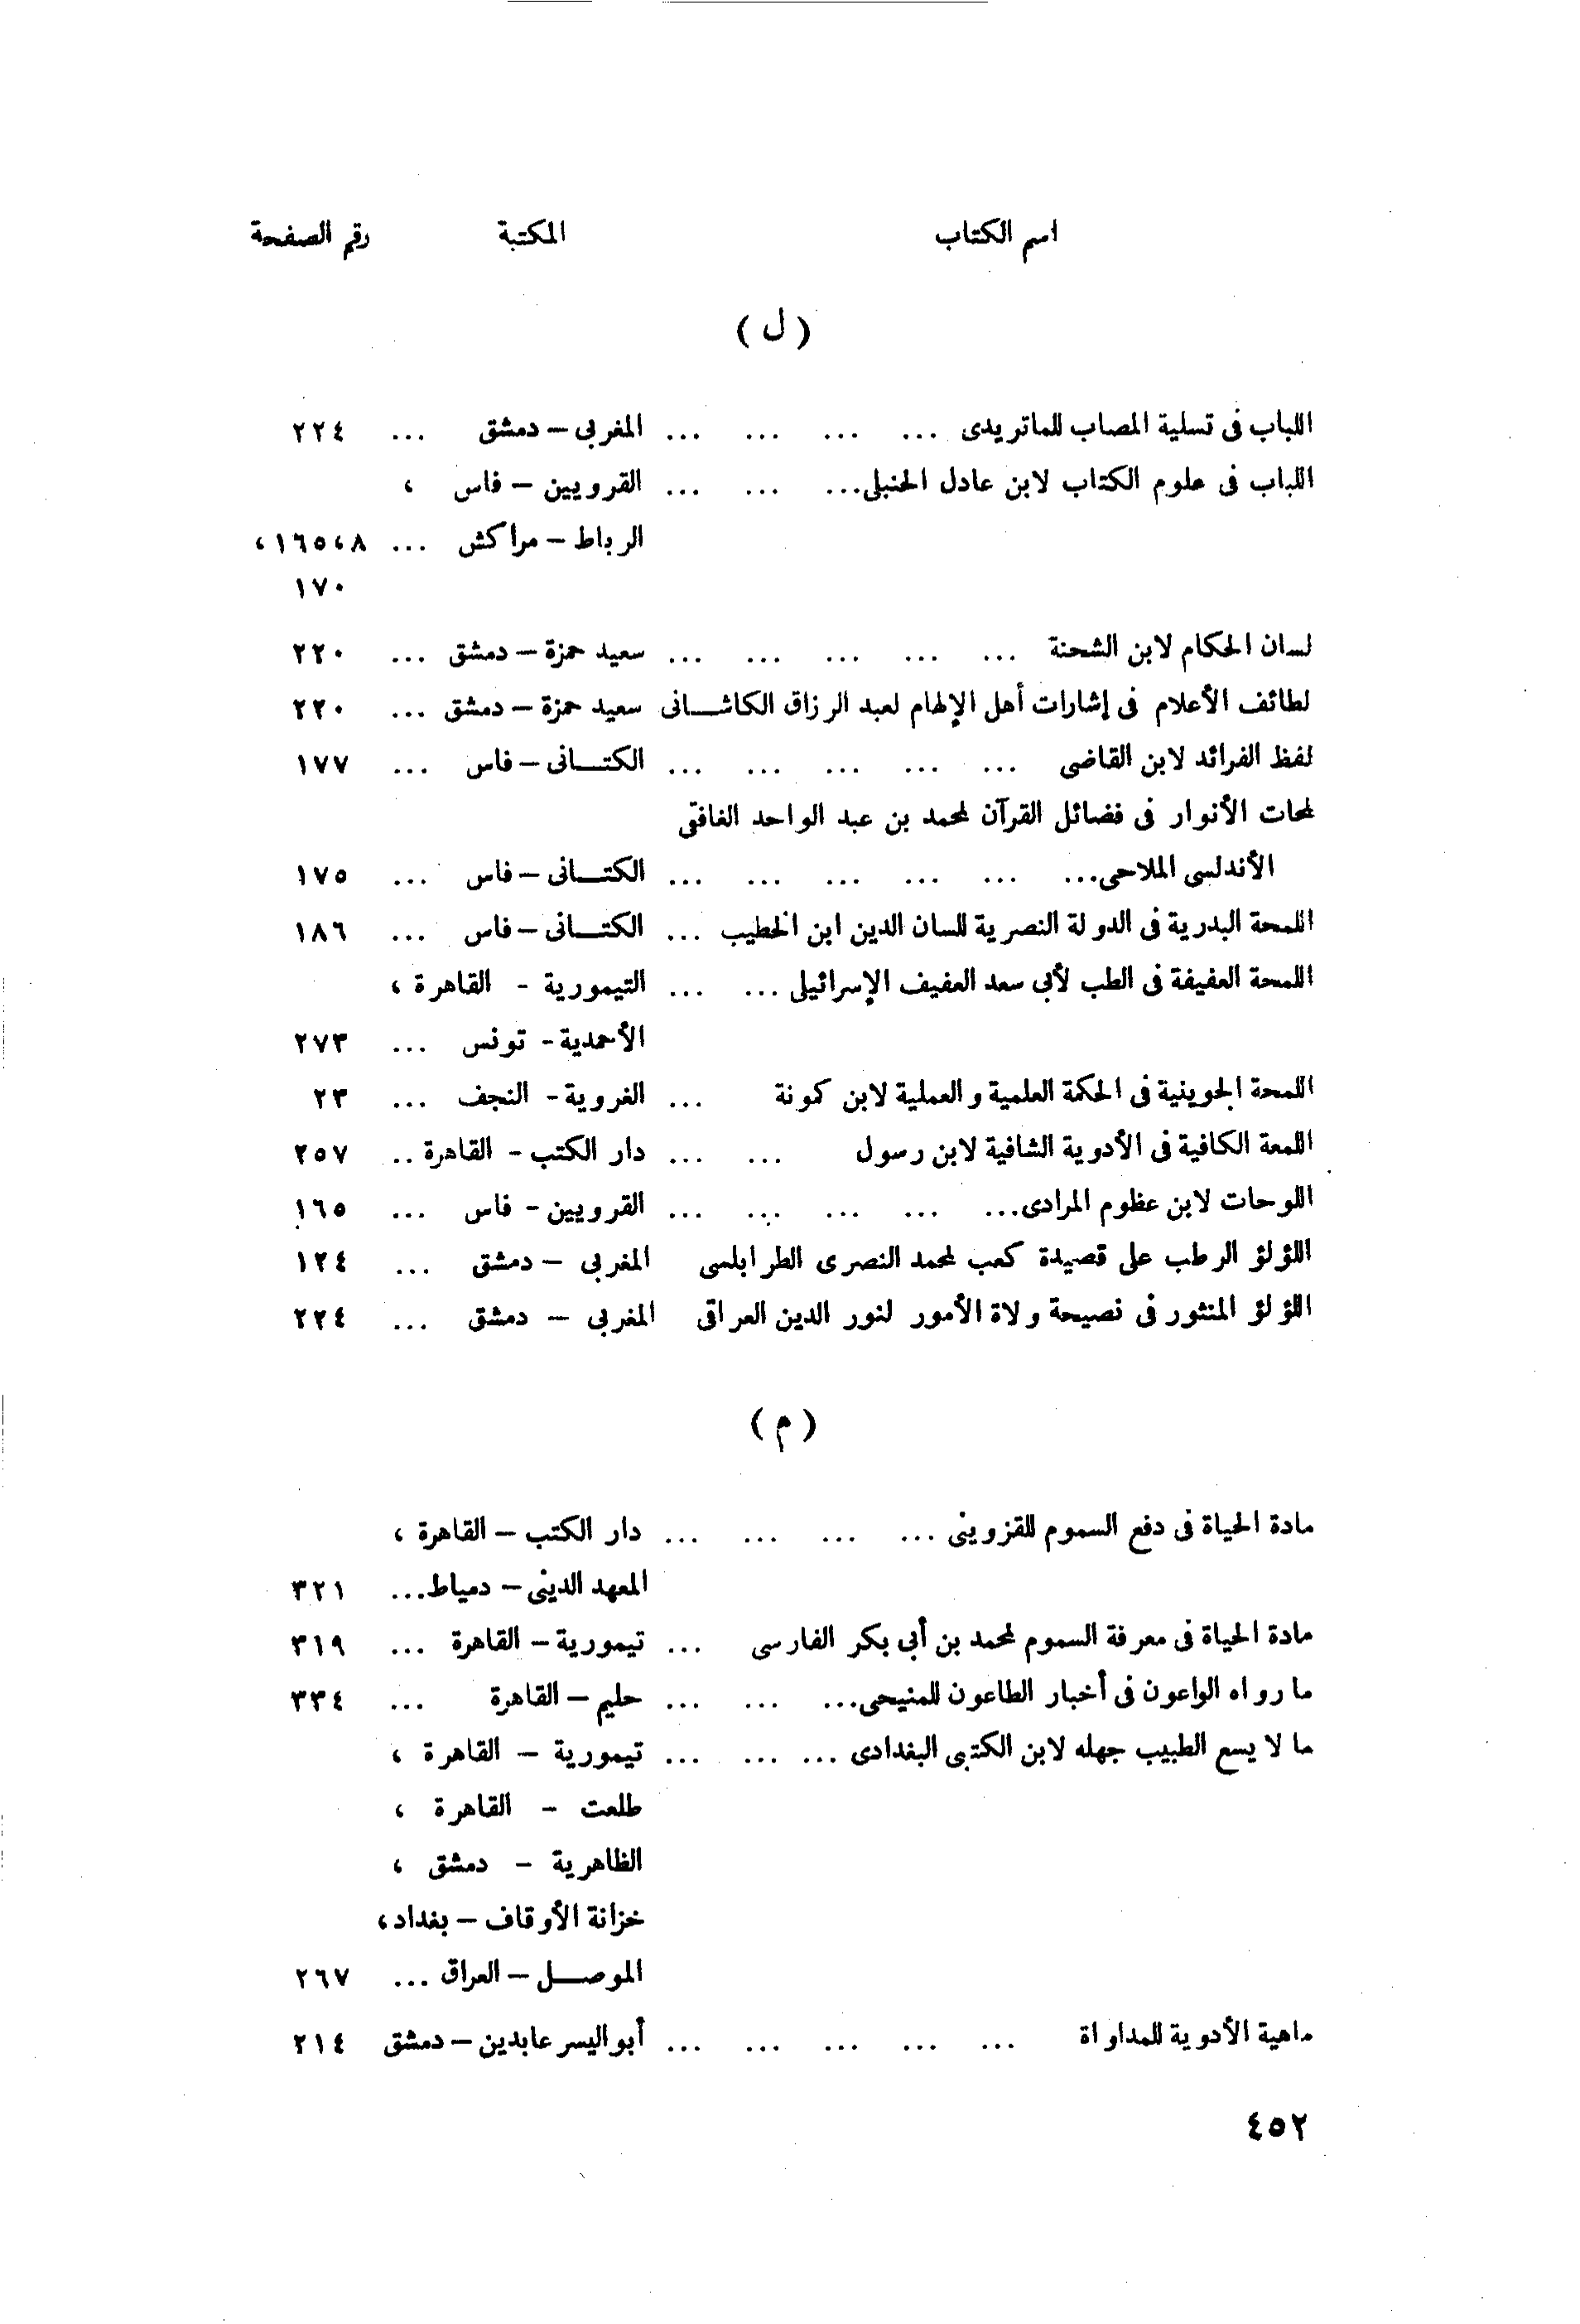 اسم الكتاب المكتبة رقم الصفحة
( ل )
اللباب فى تسلية المصاب للماتريدى ... ... ... ... المغربى – دمشق ... ٢٢٤
اللباب فى علوم الكتاب لابن عادل الحنبلى... ... ... القرويين – فاس ،
الرباط – مراكش ... ٨، ١٦٥،
١٧٠
لسان الحكام لابن الشحنة ... ... ... ... ... سعيد حمزة – دمشق ... ٢٢٠
لطائف الأعلام فى إشارات أهل الإلهام لعبد الرزاق الكاشــانى سعيد حمزة – دمشق ... ٢٢٠
لفظ الفرائد لابن القاضى ... ... ... ... ... الكتــانى – فاس ... ١٧٧
لمحات الأنوار فى فضائل القرآن لمحمد بن عبد الواحد الغافقى
الأندلسى الملاحى... ... ... ... ... ... الكتــانى – فاس ... ١٧٥
اللمحة البدرية فى الدولة النصرية للسان الدين ابن الخطيب ... الكتــانى – فاس ... ١٨٦
اللمحة العفيفة فى الطب لأبى سعد العفيف الإسرائيلى ... ... التيمورية - القاهرة ،
الأحمدية - تونس ... ٢٧٣
اللمحة الجوينية فى الحكمة العلمية والعملية لابن كمونة ... الغروية - النجف ... ٢٣
اللمعة الكافية فى الأدوية الشافية لابن رسول ... ... دار الكتب - القاهرة .. ٢٥٧
اللوحات لابن عظوم المرادى... ... ... ... ... القرويين - فاس ... ١٦٥
اللؤلؤ الرطب على قصيدة كعب لمحمد النصرى الطرابلسى المغربى – دمشق ... ١٢٤
اللؤلؤ المنثور فى نصيحة ولاة الأمور لنور الدين العراقى المغربى – دمشق ... ٢٢٤
( م )
مادة الحياة فى دفع السموم للقزوينى ... ... ... ... دار الكتب – القاهرة ،
المعهد الدينى – دمياط... ٣٢١
مادة الحياة فى معرفة السموم لمحمد بن أبى بكر الفارسى ... تيمورية – القاهرة ... ٣١٩
ما رواه الواعون فى أخبار الطاعون للمنيحى... ... ... حليم – القاهرة ... ٣٣٤
ما لا يسع الطبيب جهله لابن الكتبى البغدادى ... ... ... تيمورية – القاهرة ،
طلعت - القاهرة ،
الظاهرية - دمشق ،
خزانة الأوقاف – بغداد ،
الموصــل – العراق ... ٢٦٧
ماهية الأدوية للمداواة ... ... ... ... ... أبو اليسر عابدين – دمشق ٢١٤
٤٥٢